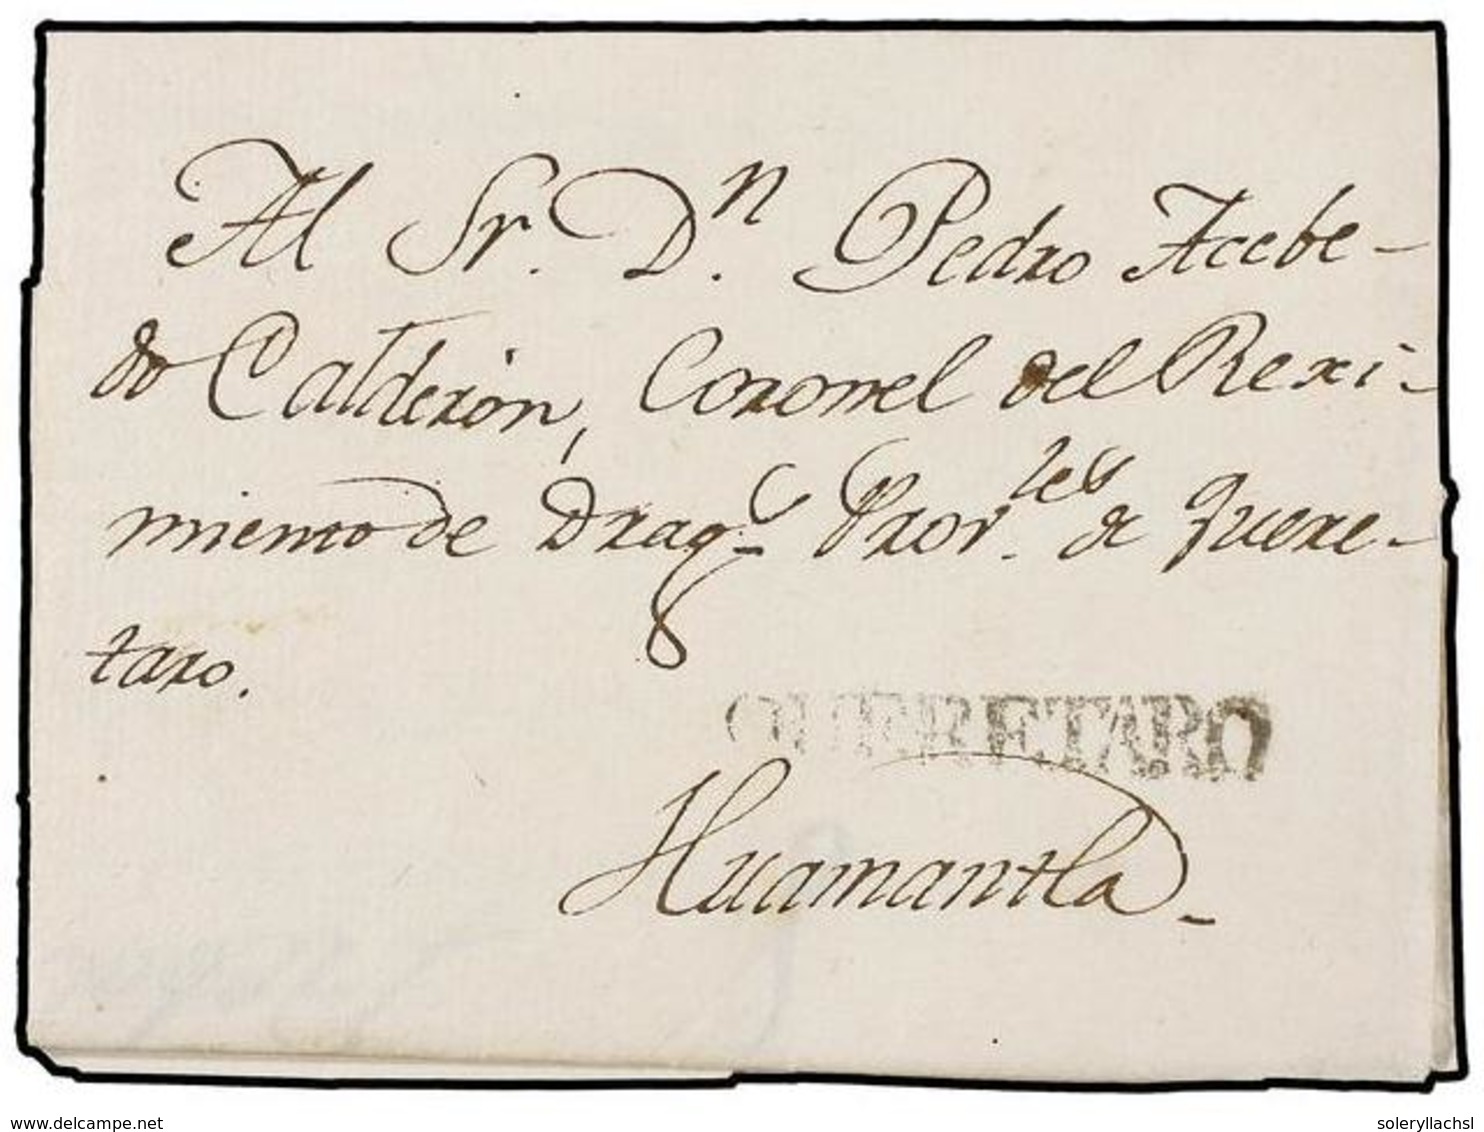 Al Sr. Dn. Pedro Acebe-
do Calderón, Coronel del Rexi-
miento de Dragⁿ. Prov.les de Quere-
taro.
QUERETARO
Huamantla-
www.delcampe.net
soleryllachsl